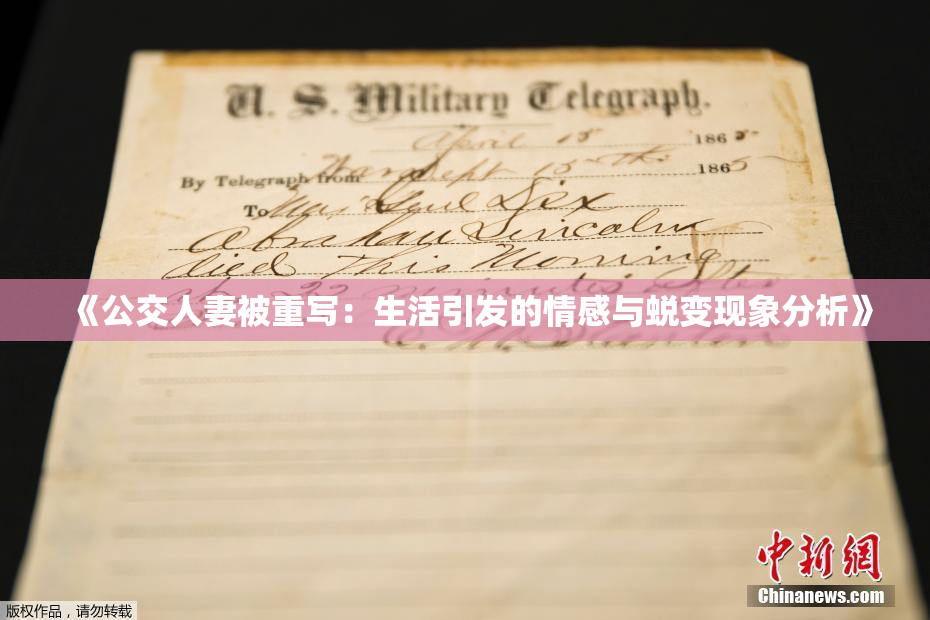 U. S. Military Telegraph.
April 15 1865
By Telegraph from War Dept 15th 1865
To Maj Genl Dix
Abraham Lincoln
died This Morning
at 22 minutes after
《公交人妻被重写：生活引发的情感与蜕变现象分析》
E. M. Stanton
中新网
Chinanews.com
版权作品，请勿转载